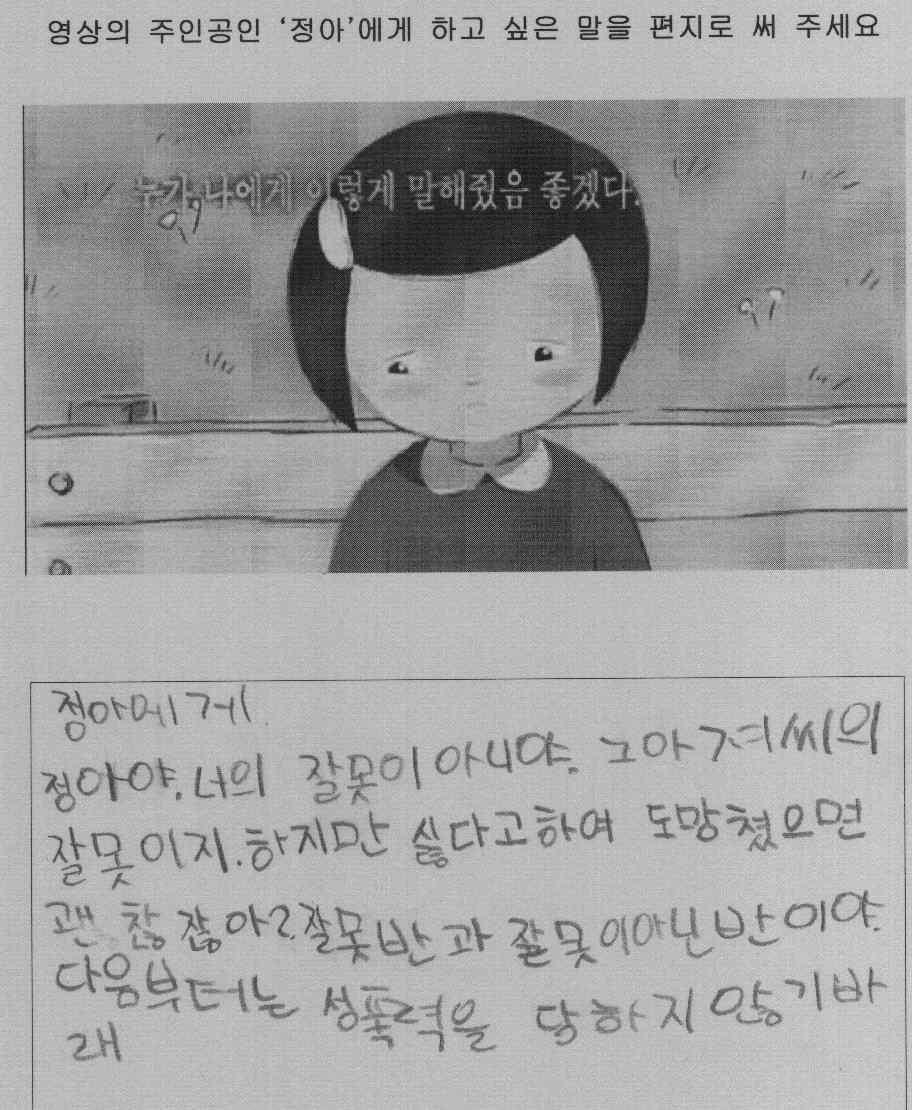 영상의 주인공인 '정아'에게 하고 싶은 말을 편지로 써 주세요
누가 나에게 이렇게 말해줬음 좋겠다.
정아에게.
정아야. 너의 잘못이 아니야. 그 아저씨의
잘못이지. 하지만 싫다고하여 도망쳤으면
괜찮잖아? 잘못반과 잘못이아닌반이야.
다음부터는 성폭력을 당하지 않기바
래